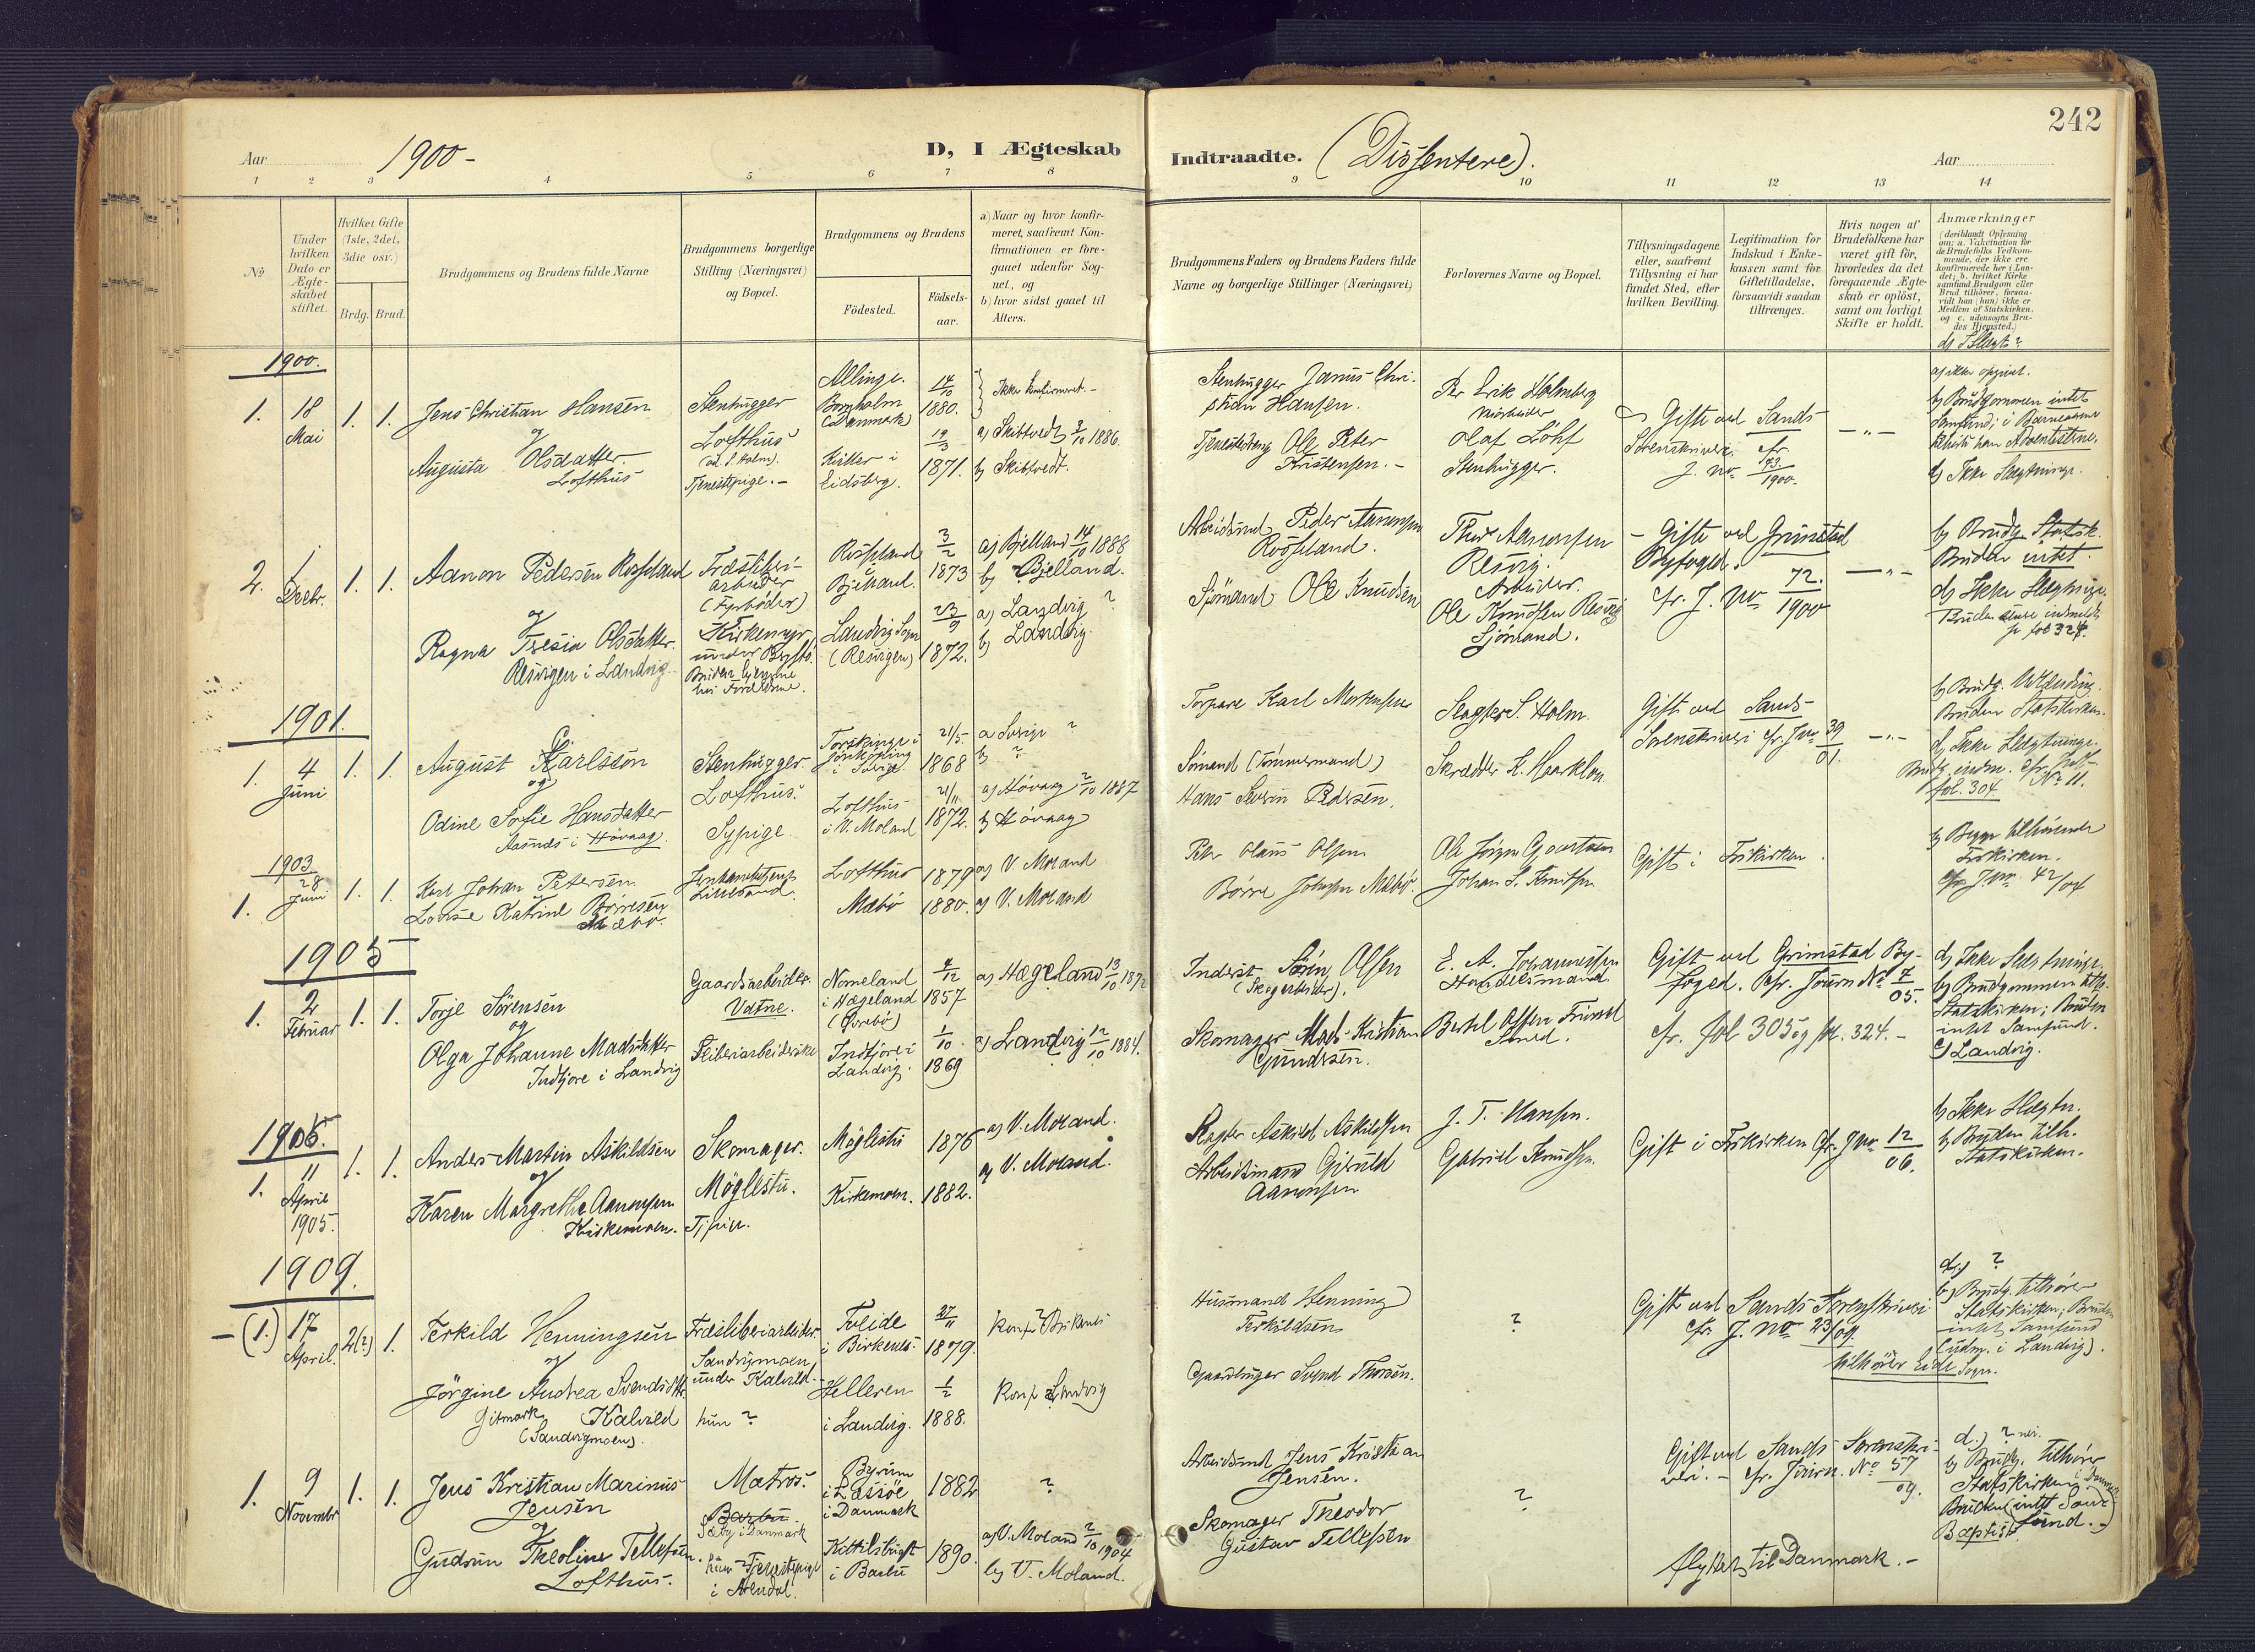 242
Aar 1900 - D, I Ægteskab Indtraadte. (Dissentere). Aar
1 2 3 4 5 6 7 8 9 10 11 12 13 14
№
Under hvilken Dato er Ægte-skabet stiftet.
Hvilket Gifte (1ste, 2det, 3die osv.)
Brdg. Brud.
Brudgommens og Brudens fulde Navne
Brudgommens borgerlige Stilling (Næringsvei) og Bopæl.
Brudgommens og Brudens
Födested.
Födsels-aar.
a) Naar og hvor konfir-
meret, saafremt Kon-
firmationen er fore-
gaaet udenfor Sog-
net, og
b) hvor sidst gaaet til
Alters.
Brudgommens Faders og Brudens Faders fulde
Navne og borgerlige Stillinger (Næringsvei)
Forlovernes Navne og Bopæl.
Tillysningsdagene
eller, saafremt
Tillysning ei har
fundet Sted, efter
hvilken Bevilling.
Legitimation for
Indskud i Enke-
kassen samt for
Giftetilladelse,
forsaavidt saadan
tiltrænges.
Hvis nogen af
Brudefolkene har
været gift för,
hvorledes da det
foregaaende Ægte-
skab er oplöst,
samt om lovligt
Skifte er holdt.
Anmærkninger
(deriblandt Oplysning
om: a. Vakcination for
de Brudefolks Vedkom-
mende, der ikke ere
konfirmerede her i Lan-
det; b. hvilket Kirke
samfund Brudgom eller
Brud tilhörer, forsaa-
vidt han (hun) ikke er
Medlem af Statskirken,
og c. udensogns Bru-
des Hjemsted.)
d) Slægt?
1900.
1. 18 Mai 1. 1.
Jens Christian Hansen
og
Augusta Olsdatter.
Lofthus
Stenhugger
Lofthus
(ved S. Holm).
Tjenestepige. -
Allinge.
Bornholm
(Danmark)
14/10 1880.
i
Eidsberg.
19/3 1871.
Ikke konfirmeret. -
a) Skibtvedt 3/10 1886.
b) Skibtvedt.
Stenhugger Janus Chri-
stian Hansen.
Ole Peter
Kristensen. -
Per Erik Holmberg
Olaf Löhf
Stenhugger.
Gifte ved Sands
Sorenskriveri. cfr.
J. No 193/1900.
- " -
a) ikke opgivet.
b) Brudgommen intet
Samfund; i Barneaarene
han Adventisterne.
d) Ikke Slægtninge.
2. 1 Decbr. 1. 1.
Aanon Pedersen Rosseland
og
Ragna Tresia Olsdatter.
Resvigen i Landvig.
Træsliberi-
arbeider
(Fyrbøder)
Kirkemyr
Bruden hjemme
hos Forældrene.
Rosseland
i
Bjelland.
3/2 1873
Landvig Sogn
(Resvigen)
23/9 1872.
a) Bjelland 14/10 1888
b) Bjelland.
a) Landvig ?
b) Landvig.
Arbeidsmd. Peder Aanonsen
Rosseland.
Sjömand Ole Knudsen
Thor Aanonsen
Resvig.
Arbeider.
Ole Knudsen Resvig
Sjömand.
- Gifte ved Grimstad
Byfoged.
cfr. J. No 72./1900
- " -
b) Brudg. Statsk.
Bruden intet.
d) Ikke Slægtninge.
Bruden senere indmeldt
fol 324.
1901.
1. 4 Juni 1. 1.
August Karlsson
og
Odine Sofie Hansdatter
Aasnes i Høvaag.
Stenhugger.
Lofthus.
Sypige.
Torskinge i
Jönköping
i Sverige
21/5 1868
Lofthus
i V. Moland
21/11 1872.
a Sverige ?
b ?
a) Høvaag 2/10 1887
b) Høvaag
Torpare Karl Mortensen
Sömand (Tömmermand)
Hans Severin Pedersen.
Slagter S. Holm.
Skrædder K.
Gifte ved Sands
Sorenskriveri cfr. J no 39/01.
- " -
b) Brudg. Udlænding.
Bruden Statskirken.
d) Ikke Slægtninge.
Brudg. indm. cfr.
fol. 304. No 11.
1903
1. 28 Juni 1. 1.
Karl Johan Petersen
Lovise Katrine Börresen
Mæbø.
Lillesand.
Lofthus 1879
Mæbö 1880.
a) V. Moland
a) V. Moland
Peter Olaus Olsen
Börre Johnsen Mæbø.
Ole Jörgen Gjeertsen
Johan S. Knudsen
Gift i Frikirken.
b) Begge tilhörende
Frikirken.
cfr. J. no. 42/04
1905
1. 2 Februar 1. 1.
Torje Sörensen
og
Olga Johanne Madsdatter
Indtjore i Landvig
Gaardsarbeider.
Vatne.
Sliberiarbeiderske
Nomeland
i Hægeland
(Øvrebö)
4/12 1857
Indtjore i
Landvig.
1/10 1869
a) Hægeland 13/10 1872
a) Landvig 12/10 1884.
Inderst Sörin Olsen
Skomager Mads Kristian
Gundersen.
E. A. Johannessen
Handelsmand.
Bertel Olsen
Smed.
Gift ved Grimstad By-
foged. Cfr. Journ No 7/05.
cfr. fol 305 og fol. 324. -
d) Ikke Slægtninge.
b) Brudgommen tilh.
Statskirken; Bruden
intet Samfund.
c) Landvig.
1905.
1. 11 April 1905. 1. 1.
Anders Martin Askildsen
og
Karen Margrethe Aanonsen
Kirkemoen.
Skomager.
Møglestu.
Tjpige.
Møglestu 1876
Kirkemoen. 1882.
a) V. Moland.
a) V. Moland.
Askild Askildsen
Arbeidsmand Gjeruld
Aanonsen
J. T. Hansen.
Gabriel Knudsen.
Gift i Frikirken cfr. J no 12/06.
b) Ikke Slægtn.
b) Bruden tilh.
Statskirken.
1909.
- (1.) 17 April. 2(?) 1.
Terkild Henningsen
og
Jörgine Andrea Svendsdtr.
Gitmark, Kalvild
(Sandvigmoen).
Træsliberiarbeider.
Sandvigmoen,
under Kalvild.
hun ?
Tveide
i Birkenes.
27/11 1879.
Helleren
i Landvig.
1/2 1888.
Konf. ? Birkenes
Konf. Landvig
Husmand Henning
Terkildsen
Gaardbruger Svend Thorsen.
?
Gift ved Sands Sorenskriveri
cfr. J. No 23/09.
tilhörer Eide Sogn.
d) ?
b) Brudg. tilhörer
Statskirken, Bruden
intet Samfund
(udm. i Landvig).
1. 9 Novembr 1. 1.
Jens Kristian Marinus
Jensen
og
Gudrun Theoline Tellefsen.
Lofthus.
Matros.
Barbu.
Sæby i Danmark
hun ? Tjenestepige
i Arendal.
Byrum
i Læssöe
i Danmark
1882
Kittilsbugt
i Barbu
1890.
?
a) V. Moland 2/10 1904
b) V. Moland.
Arbeidsmd Jens Kristian
Jensen.
Skomager Theodor
Gustav Tellefsen
?
Gift ved Sands Sorenskri-
veri. - cfr. Journ. No 57/09.
flyttet til Danmark. -
d.) ? nei.
b) Brudg. tilhörer
Statskirken i Danmark
Bruden (intet Sam-
fund.)
Baptist